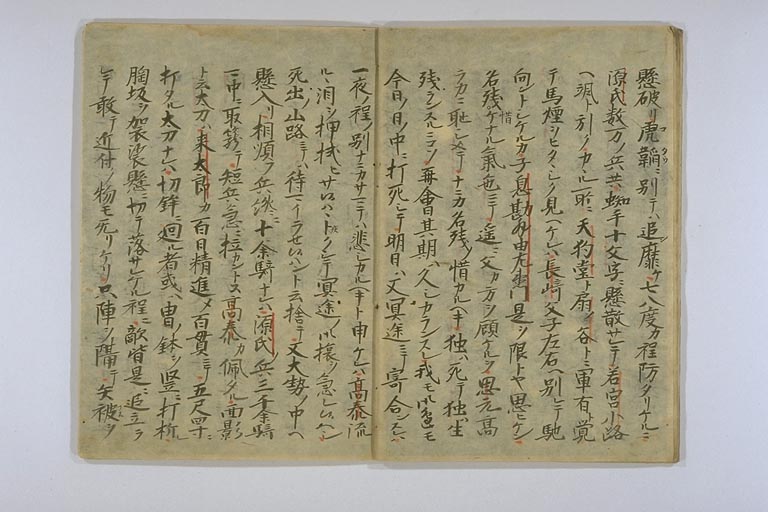 懸破リ虎韜ニ別テハ追靡ケ七八度カ程防タリケルニ
源氏数万ノ兵共蜘手十文字ニ懸散サレテ若宮小路
ヘ颯ト引ノカル所ニ天狗堂ト扇ノ谷トニ軍有ト覚
テ馬煙ヒタヽシク見ヘケレハ長崎父子左右ヘ別レテ馳
向ントシケルカ子息勘解由左衛門是ヲ限トヤ思ヒケン
名残惜ケナル氣色ニテ遥ニ父カ方ヲ顧ケルヲ思元高
ラカニ恥シメテナニカ名残ノ惜カルヘキ独ハ死テ独生
残ランスルニコソ再會其期ハ久シカランスレ我モ人モ
今日ノ日ノ中ニ打死シテ明日ハ又冥途ニテ寄合ンスレハ
一夜ノ程ノ別ナニカサマテハ悲シカルヘキト申ケレハ高泰流
ルヽ泪ヲ押拭ヒサ候ハヽトクシテ冥途ノ旅ヲ急シ候ヘシ
死出ノ山路ニテハ待マイラセ候ハント云捨テ又大勢ノ中ヘ
懸入リ相順フ兵纔ニ十余騎ナレハ源氏ノ兵三千余騎
一中ニ取篭テ短兵急ニ拉カントス高泰カ佩タル面影
ト云太刀ハ来太郎カ百日精進メ百貫ニテ五尺四寸ニ
打タル太刀ナレハ切鋒ニ廻ル者或ハ甲ノ鉢ヲ竪ニ打柝
胸坂ヲ袈裟懸ニ切テ落サレケル程ニ敵皆是ニ追立ラ
レテ敢テ近付ク物モ无リケリ只陣ヲ隔テ矢被ヲ